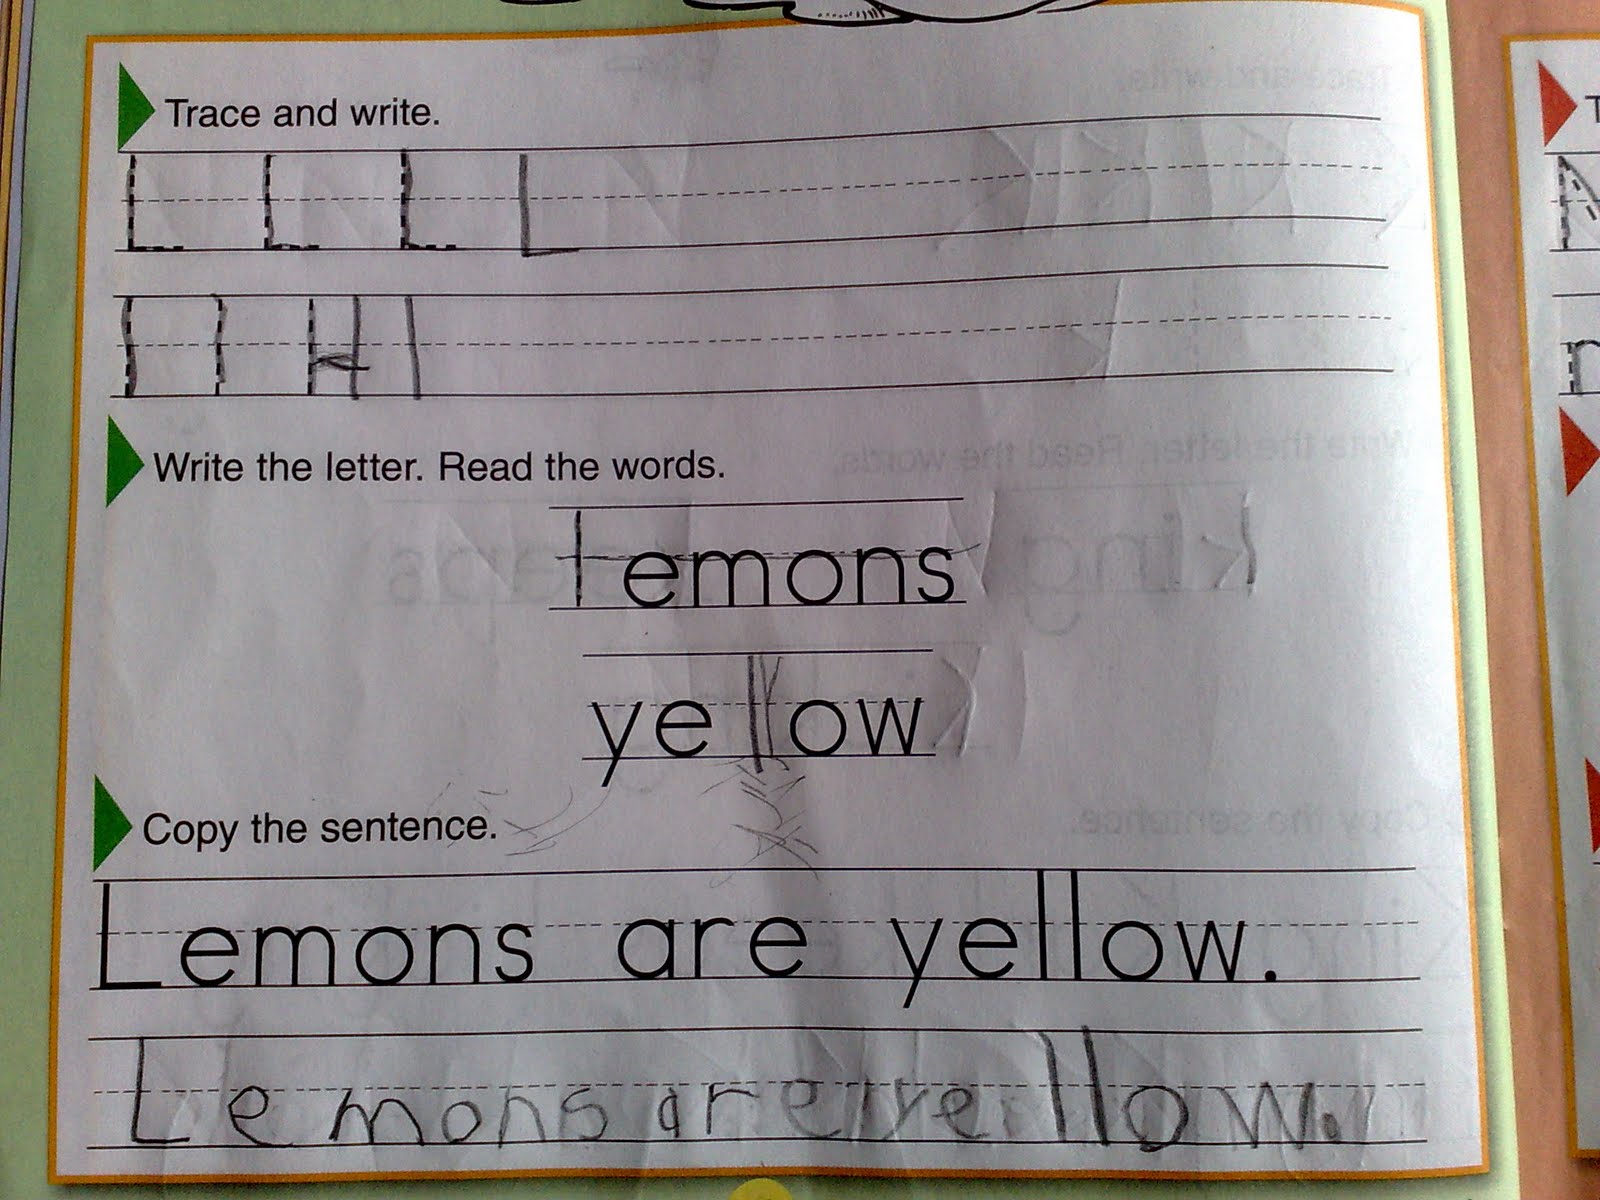 Trace and write.
L L L L
l l H l
Write the letter. Read the words.
lemons
yellow
Copy the sentence.
Lemons are yellow.
Lemons are yellow.